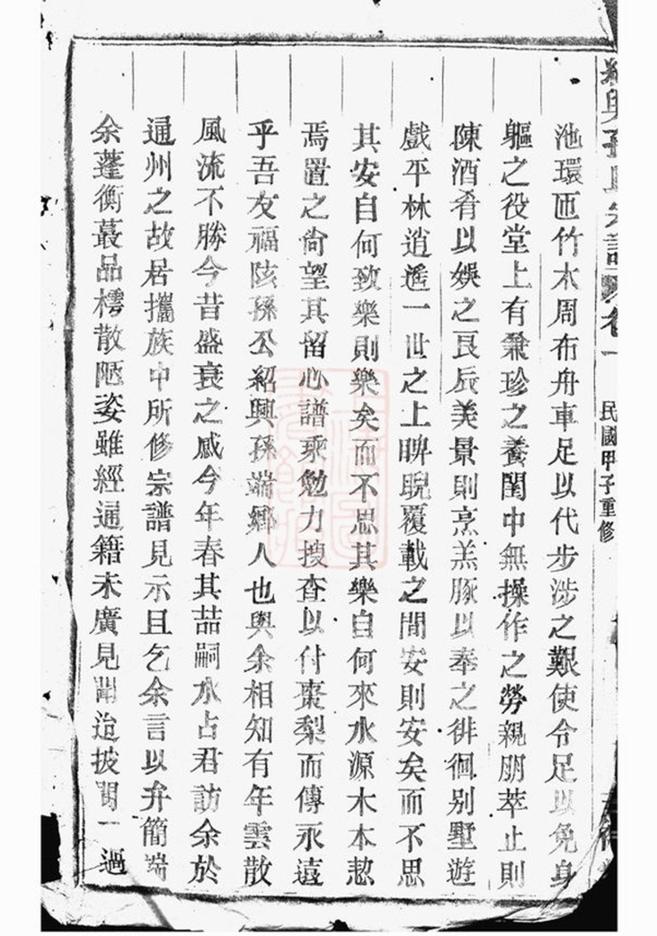 紹興孫氏宗譜 卷一 民國甲子重修
池環匝竹木周布舟車足以代步涉之艱使令足以免身
軀之役堂上有兼珍之養閨中無操作之勞親朋萃止則
陳酒肴以娛之良辰美景則烹羔豚以奉之徘徊别墅遊
戲平林逍遙一世之上睥睨覆載之間安則安矣而不思
其安自何致樂則樂矣而不思其樂自何來水源木本愸
焉置之尙望其留心譜乘勉力搜查以付棗梨而傳永遠
乎吾友福陔孫公紹興孫端鄉人也與余相知有年雲散
風流不勝今昔盛衰之感今年春其喆嗣水占君訪余於
通州之故居攜族中所修宗譜見示且乞余言以弁簡端
余蓬衡蕞品樗散陋姿雖經通籍未廣見聞迨披閱一過